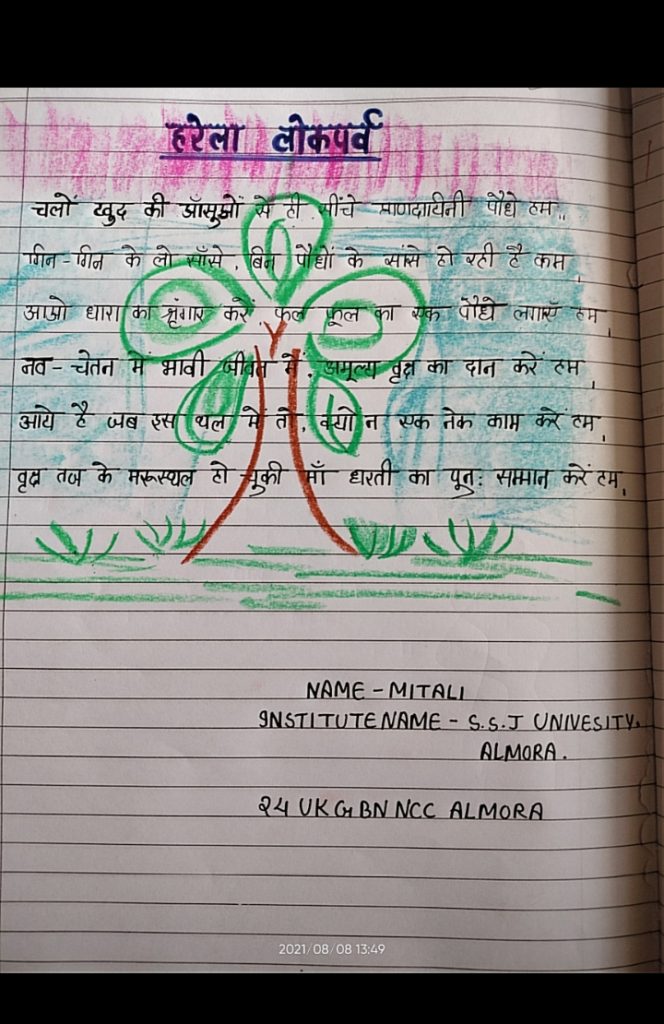 हरेला लोकपर्व
चलों खुद की आँसुओं से ही सींचे प्राणदायिनी पौधे हम,
गिन-गिन के लो साँसे, बिन पौधों के सांसे हो रही है कम,
आओ धारा का श्रृंगार करें, फल फूल का एक पौधे लगाएँ हम,
नव-चेतन में भावी जीवन में, अमूल्य वृक्ष का दान करें हम,
आये है जब इस थल मे तो, क्यो न एक नेक काम करें हम,
वृक्ष तज के मरूस्थल हो चूकी माँ धरती का पून: सम्मान करें हम,
NAME - MITALI
INSTITUTE NAME - S.S.J UNIVESITY.
ALMORA.
24 UK G BN NCC ALMORA
2021/08/08 13:49